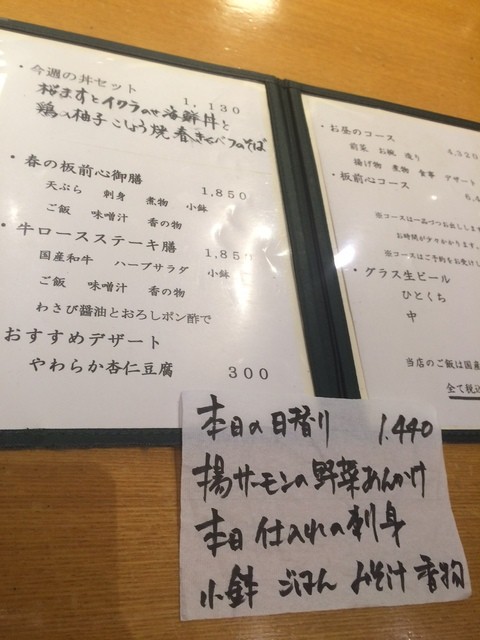 ・今週の丼セット 1,130
桜ますとイクラのせ海鮮丼と
鶏の柚子こしょう焼 春きゃべつのそば
・春の板前心御膳 1,850
天ぷら 刺身 煮物 小鉢
ご飯 味噌汁 香の物
・牛ロースステーキ膳 1,850
国産和牛 ハーブサラダ 小鉢
ご飯 味噌汁 香の物
わさび醤油とおろしポン酢で
おすすめデザート
やわらか杏仁豆腐 300
・お昼のコース 4,320
前菜 お椀 造り
揚げ物 煮物 食事 デザート
・板前心コース
※コースは一品づつお出しします
お時間が少々かかります。
※コースはご予約をお受けし
・グラス生ビール
ひとくち
中
当店のご飯は国産
全て税込
本日の日替り 1,440
揚サーモンの野菜あんかけ
本日仕入れの刺身
小鉢 ごはん みそ汁 香物